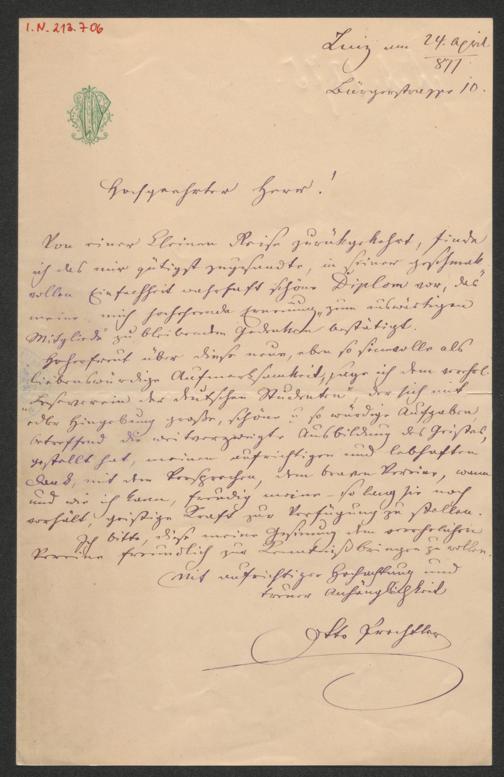 I.N. 213.706
Linz am 24. April
877
Bürgerstrasse 10.
Hochgeehrter Herr!
Von einer kleinen Reise zurückgekehrt, finde
ich das mir gütigst zugesandte, in seiner geschmack
vollen Einfachheit wahrhaft schöne Diplom vor, das
meine mich hochehrende Ernennung „zum auswärtigen
Mitgliede“ zu bleibendem Gedenken bestätigt.
Hocherfreut über diese neue, eben so sinnvolle als
liebenswürdige Aufmerksamkeit, sage ich dem verehrl.
„Leseverein der deutschen Studenten“, der sich mit
edler Hingebung große, schöne u. so würdige Aufgaben
betreffend die weitverzweigte Ausbildung des Geistes,
gestellt hat, meinen aufrichtigen und lebhaften
Dank, mit dem Versprechen, dem braven Vereine, wann
und wie ich kann, freudig meine – so lang sie noch
vorhält, geistige Kraft zur Verfügung zu stellen.
Ich bitte, diese meine Gesinnung dem verehrlichen
Vereine freundlich zur Kenntniß bringen zu wollen.
Mit aufrichtiger Hochachtung und
treuer Anhänglichkeit
Otto Prechtler